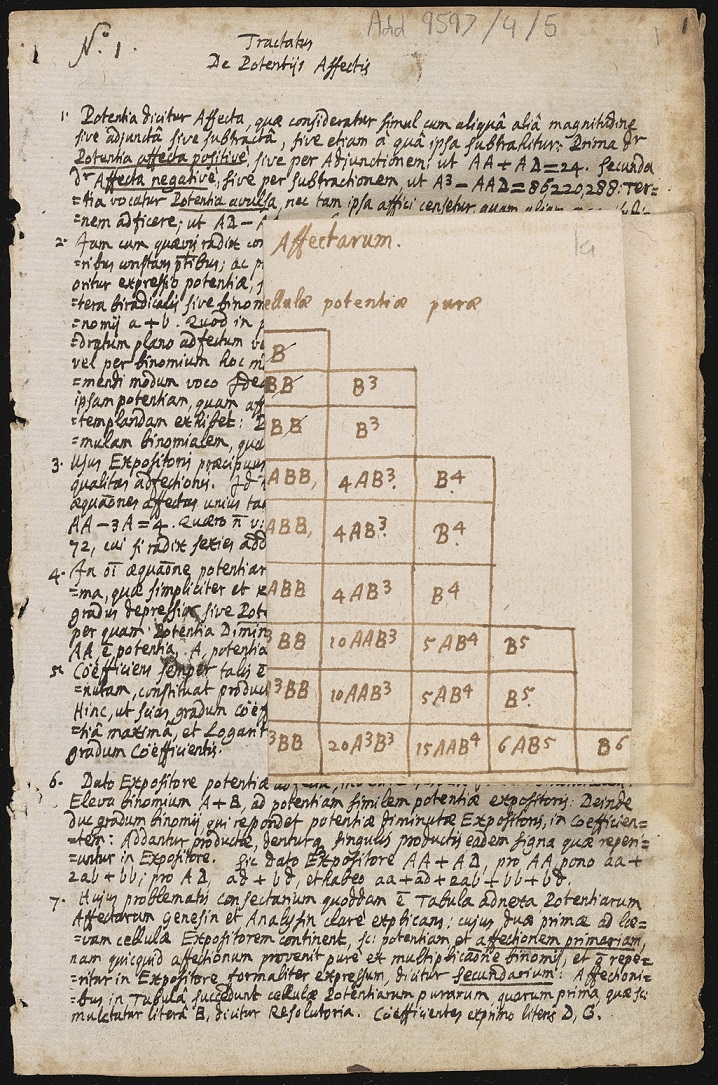 Add 9597/4/5
1
No. 1.
Tractatus
De Potentijs Affectis
1. Potentia dicitur Affecta, quæ consideratur simul cum aliquâ aliâ magnitudine
sive adjunctâ sive subtractâ, sive etiam à quâ ipsa subtrahitur: Prima dr
Potentia affecta positive, sive per Adjunctionem, ut AA + AD = 24. Secunda
dr Affecta negative, sive per subtractionem, ut A3 – AAD = 86220,288. Ter=
=tia vocatur Potentia avulsa, nec tam ipsa affici censetur, quam
=nem adficere; ut AD – A
2. Jam cum quævis radix co
=ribus constans ptibus; ac p
oritur expressio potentiæ,
=tera biradicalis sive binom
=nomij a + b. Quod in p
=dratum plano adfectum
vel per binomium hoc m
=mendi modum voco
ipsam potentiam, quam aff
=templandam exhibet:
=mulam binomialem, qua
3. Usus Expositoris præcipuus
qualitas adfectionis.
æquaōnes affectas unius
AA – 3A = 4. Quæro
72, cui si radix sexies add
4. In oī æquaōne potentiar
=ma, quæ simpliciter et
gradus depressior sive Pot
per quam Potentia Dimin
AA ē potentia, A, potentia
5. Coëfficiens semper talis ē
=nutam, constituat produc
Hinc, ut scias gradum coëf
=tiâ maximâ, et Logarit
gradum Coëfficientis.
Affectarum.
ellulæ potentiæ puræ
B
BB B3
BB B3
ABB, 4AB3. B4
ABB, 4AB3. B4
ABB 4AB3 B4
3BB 10AAB3 5AB4 B5
3BB 10AAB3 5AB4 B5.
3BB 20A3B3 15AAB4 6AB5 B6
6. Dato Expositore potentiæ
Eleva binomium A + B, ad potentiam similem potentiæ expositoris: Deinde
duc gradum binomij qui respondet potentiæ diminutæ Expositoris, in Coefficien=
=tem: Addantur productæ, dentur singulis productis eadem signa quæ reperi=
=untur in Expositore. Sic Dato Expositore AA + AD, pro AA, pono aa +
2ab + bb; pro AD, ad + bd, et habeo aa + ad + 2ab + bb + bd.
7. Hujus problematis consectarium quoddam ē Tabula adnexa Potentiarum
Affectarum genesin et Analysin clare explicans; cujus duæ primæ ad læ=
=vam cellulæ Expositorem continent, sc: potentiam et affectionem primariam,
nam quicquid affectionum provenit pure ex multiplicaōne binomij, et repe=
=ritur in Expositore formaliter expressum, dicitur secundarium: Affectioni=
=bus in Tabula succedunt cellulæ Potentiarum purarum, quarum prima, quæ sc:
mulctatur literâ B, dicitur Resolutoria. Coëfficientes exprimo literis D, G.